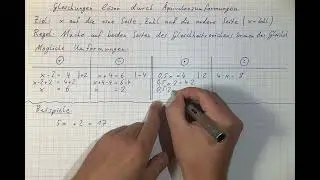 Gleichungen lösen durch Äquivalenzumformungen
Ziel: x auf die eine Seite, Zahl auf die andere Seite
Regel: Mache auf beiden Seiten des Gleichheitszeichens immer das Gleiche
Mögliche Umformungen:
x - 2 = 4 |+2
x + 4 = 6 |-4
0,5x = 4 |·2
4x = 8
x - 2 + 2 = 4 + 2
x + 4 - 4 = 6 - 4
0,5x · 2 = 4 · 2
x = 6
x = 2
Beispiele
5x + 2 = 17